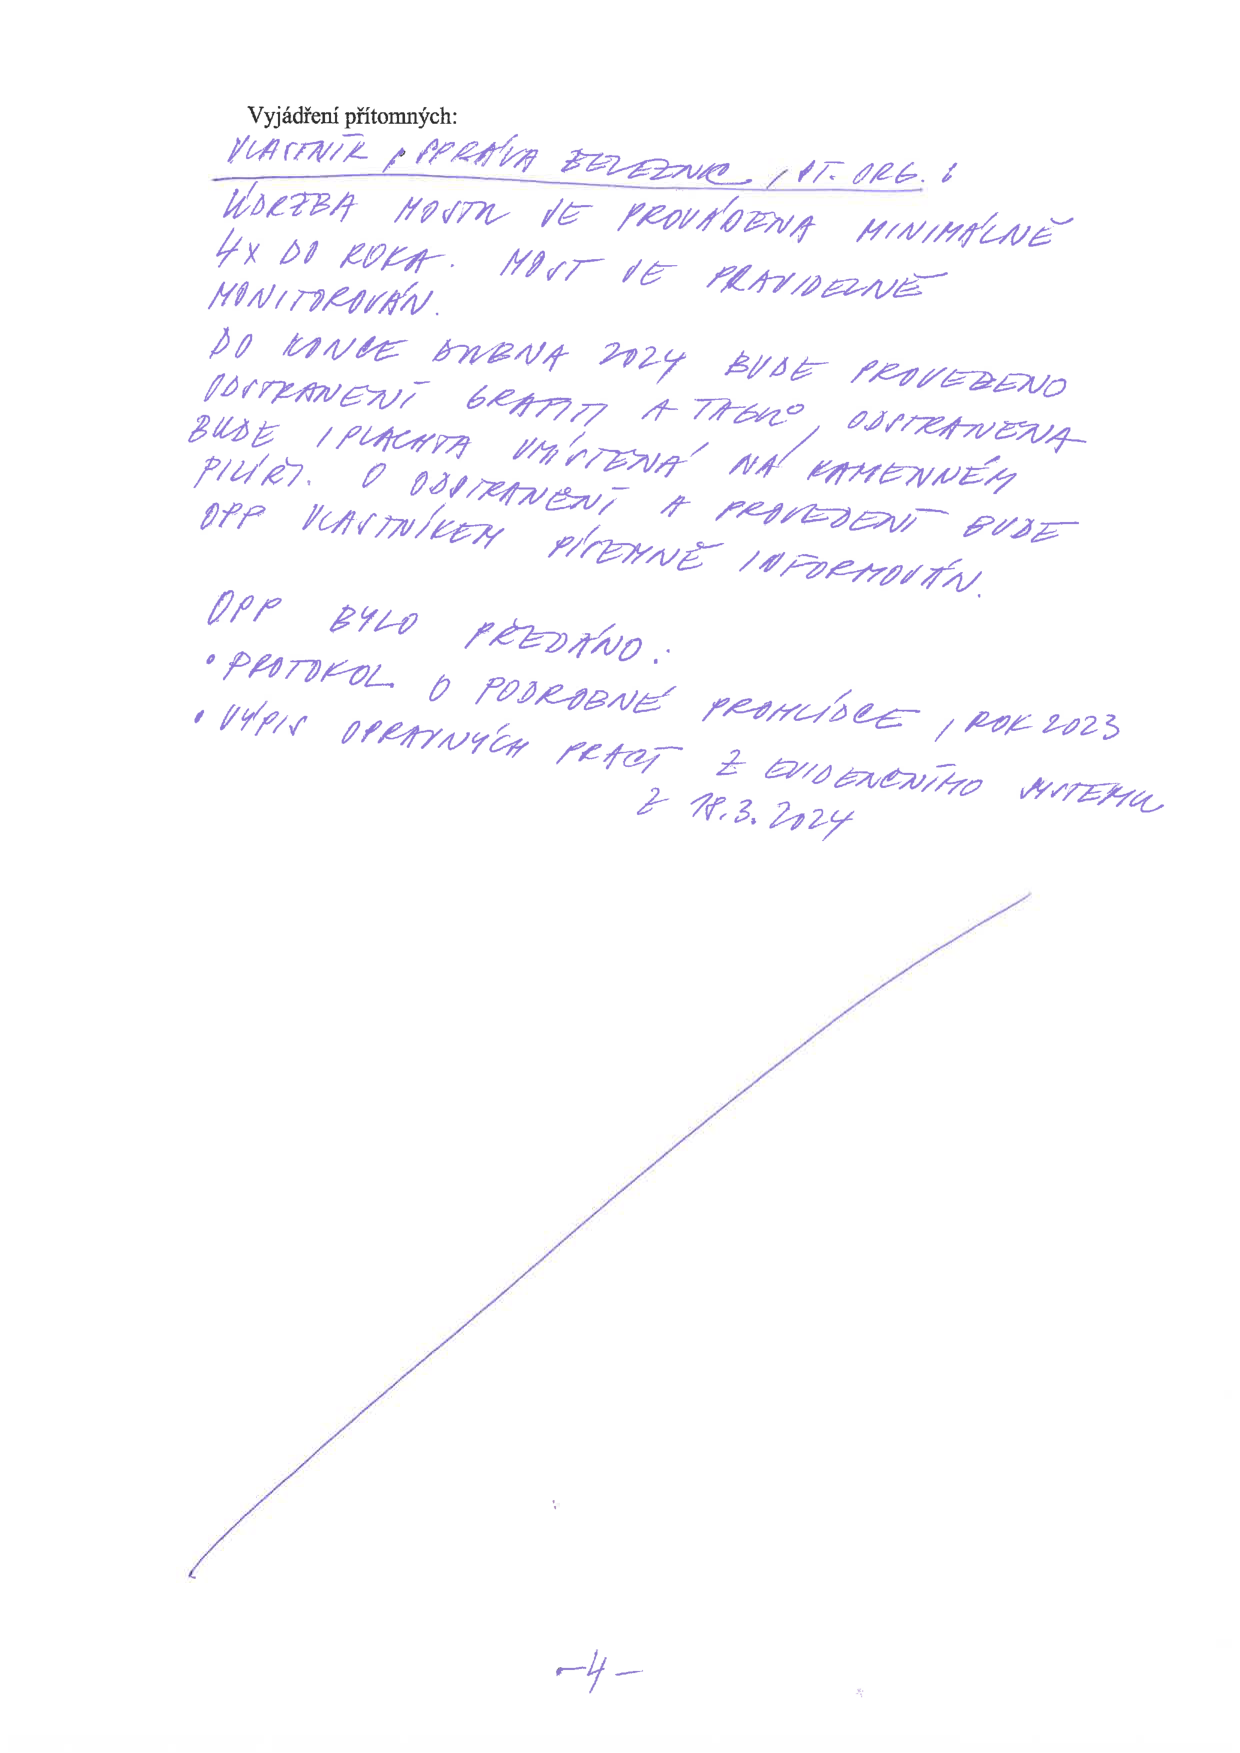 Vyjádření přítomných:
VLASTNÍK, SPRÁVA ŽELEZNIC, ST. ORG. :
ÚDRŽBA MOSTU JE PROVÁDĚNA MINIMÁLNĚ
4X DO ROKA. MOST JE PRAVIDELNĚ
MONITOROVÁN.
DO KONCE DUBNA 2024 BUDE PROVEDENO
ODSTRANENÍ GRAFITI A TAGŮ, ODSTRANENA
BUDE I PLACHTA UMÍSTENÁ NA KAMENNÉM
PILÍŘI. O ODSTRANĚNÍ A PROVEDENÍ BUDE
OPP VLASTNÍKEM PÍSEMNĚ INFORMOVÁN.
OPP BYLO PŘEDÁNO:
• PROTOKOL O PODROBNÉ PROHLÍDCE, ROK 2023
• VÝPIS OPRAVNÝCH PRACÍ Z EVIDENČNÍHO SYSTEMU
Z 18.3.2024
-4-